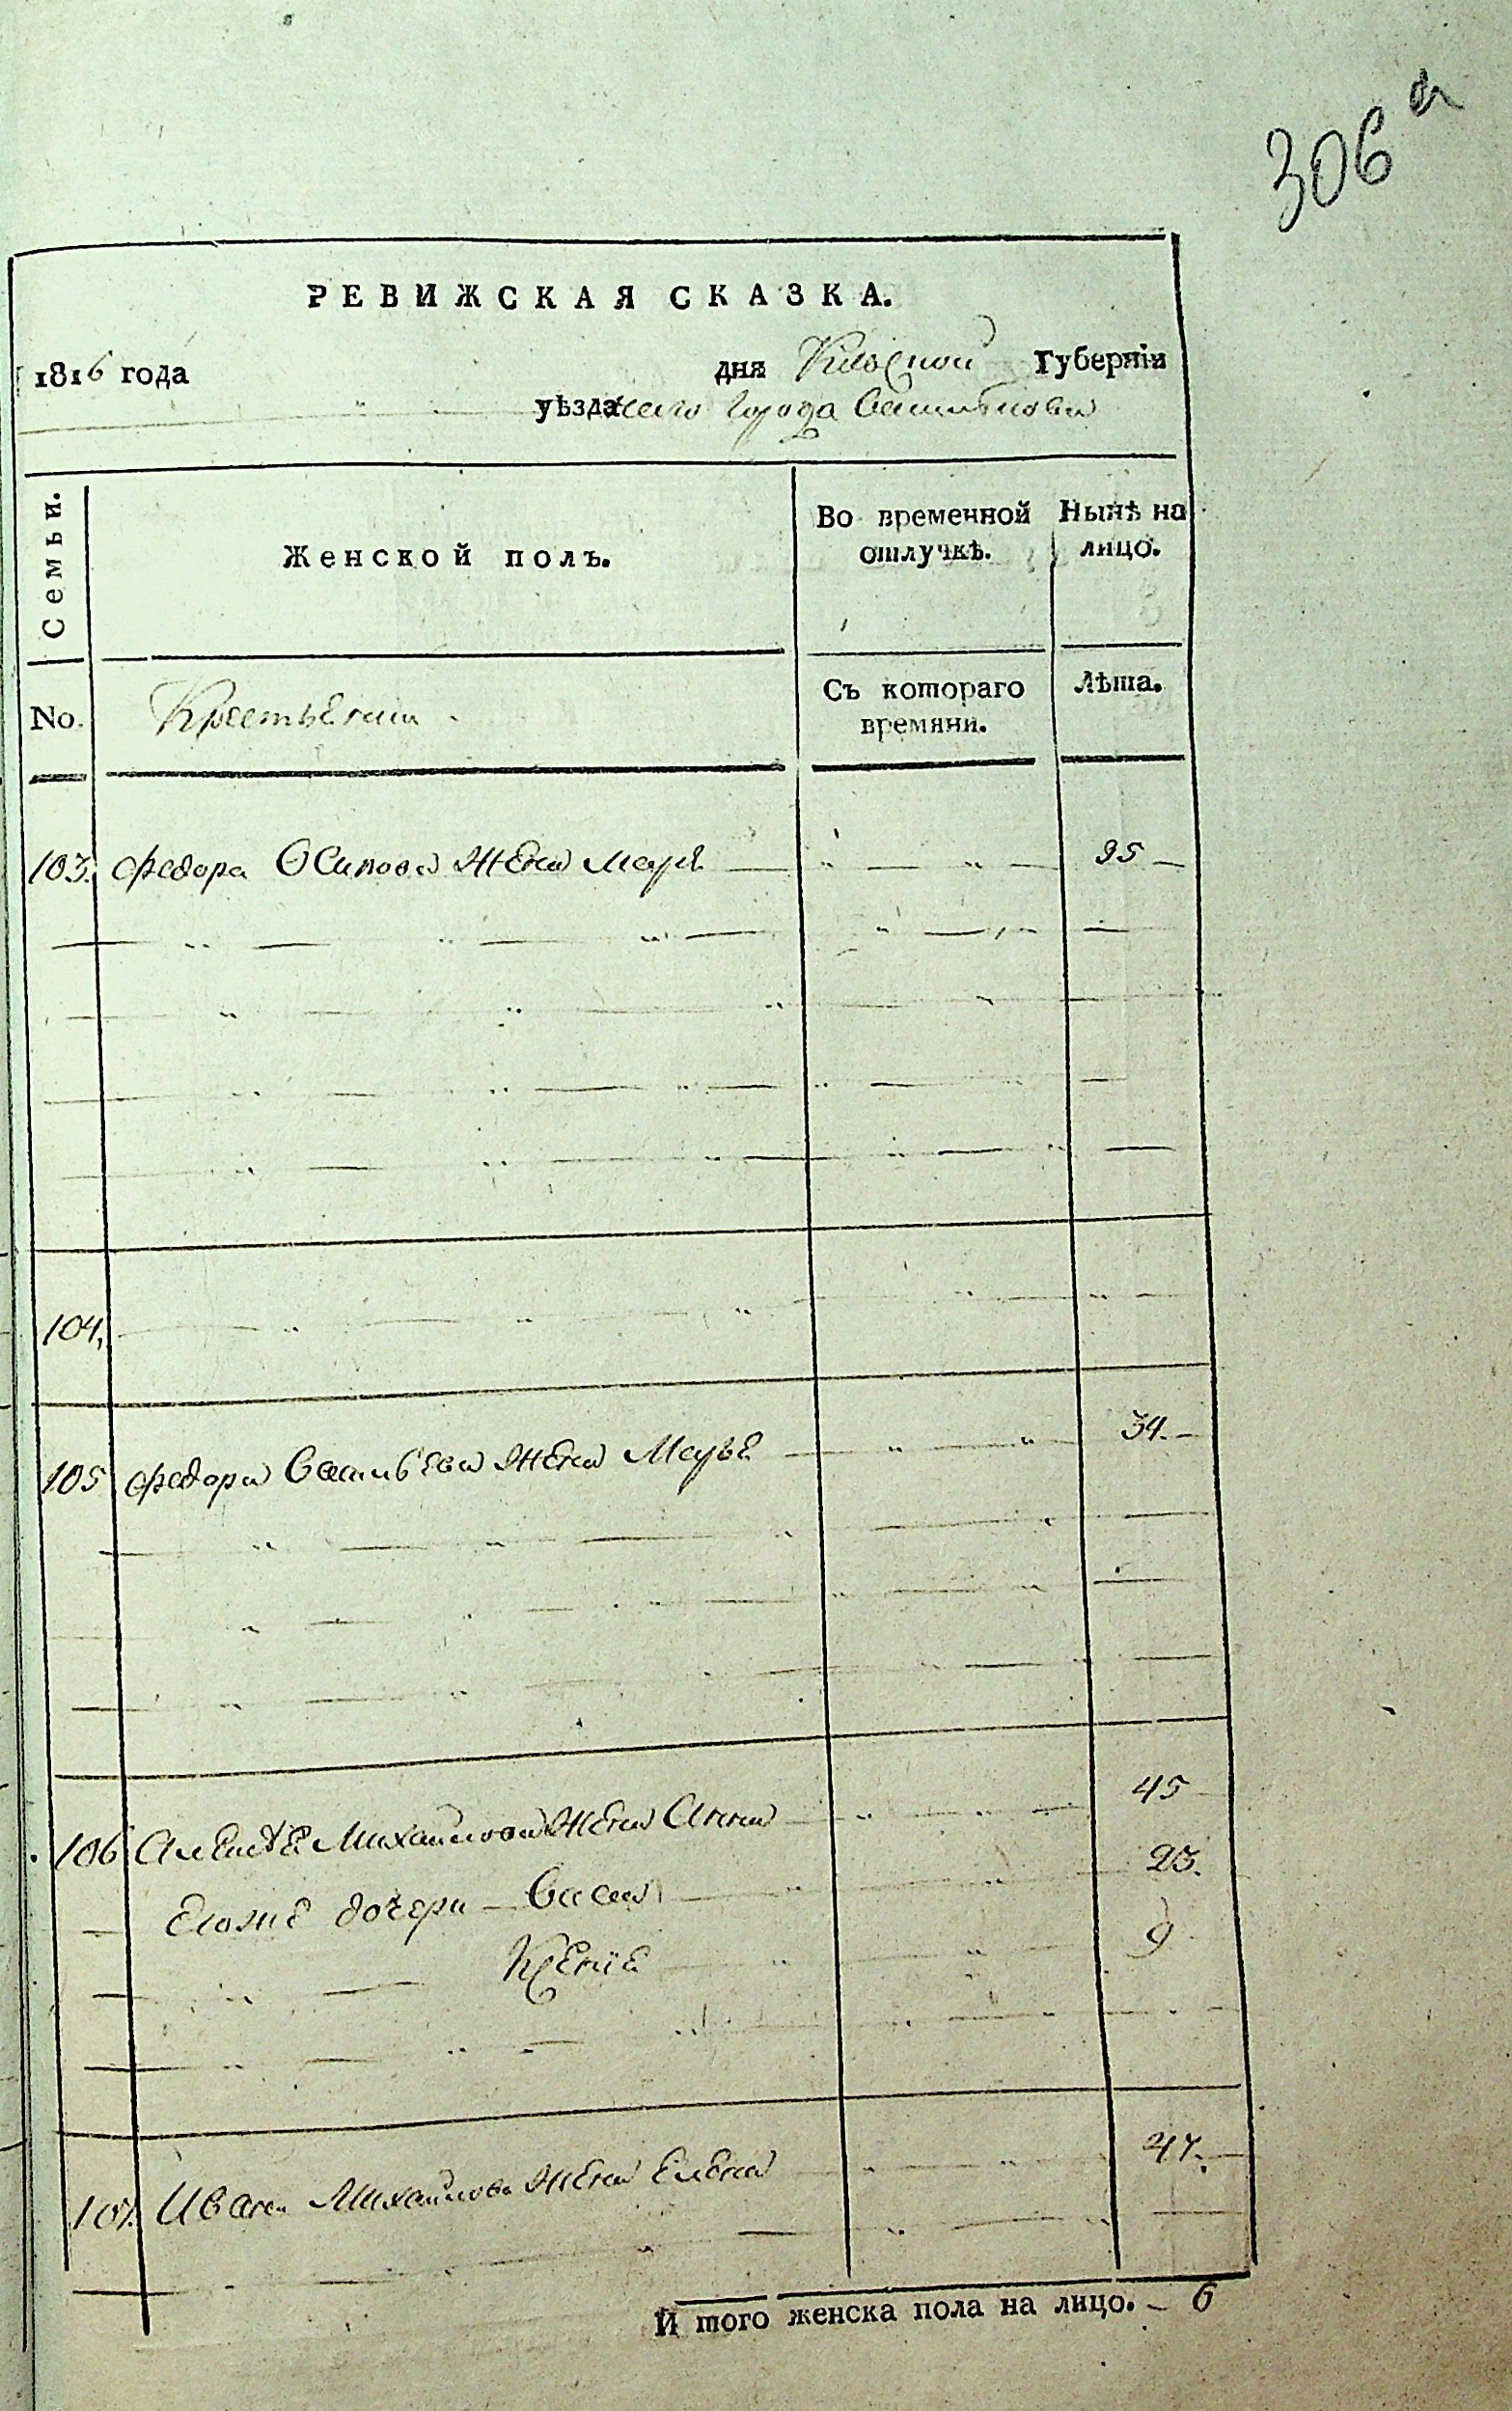 306 а
РЕВИЖСКАЯ СКАЗКА.
1816 года дня Киевской Губерніи
уѣзда сего города Василькова
Семьи.
Женской полъ.
Во временной отлучкѣ.
Нынѣ на лицо.
No.
Крестьяни
Съ котораго времяни.
Лѣта.
103. Федора Осипова жена Марѣ 35
104.
105 Федора Васильева жена Марья 34.
106 Алексѣя Михайлова жена Анна 45
Егоже дочери Васса 23.
Ксенія 9
107. Ивана Михайлова жена Елена 47.
И того женска пола на лицо. 6